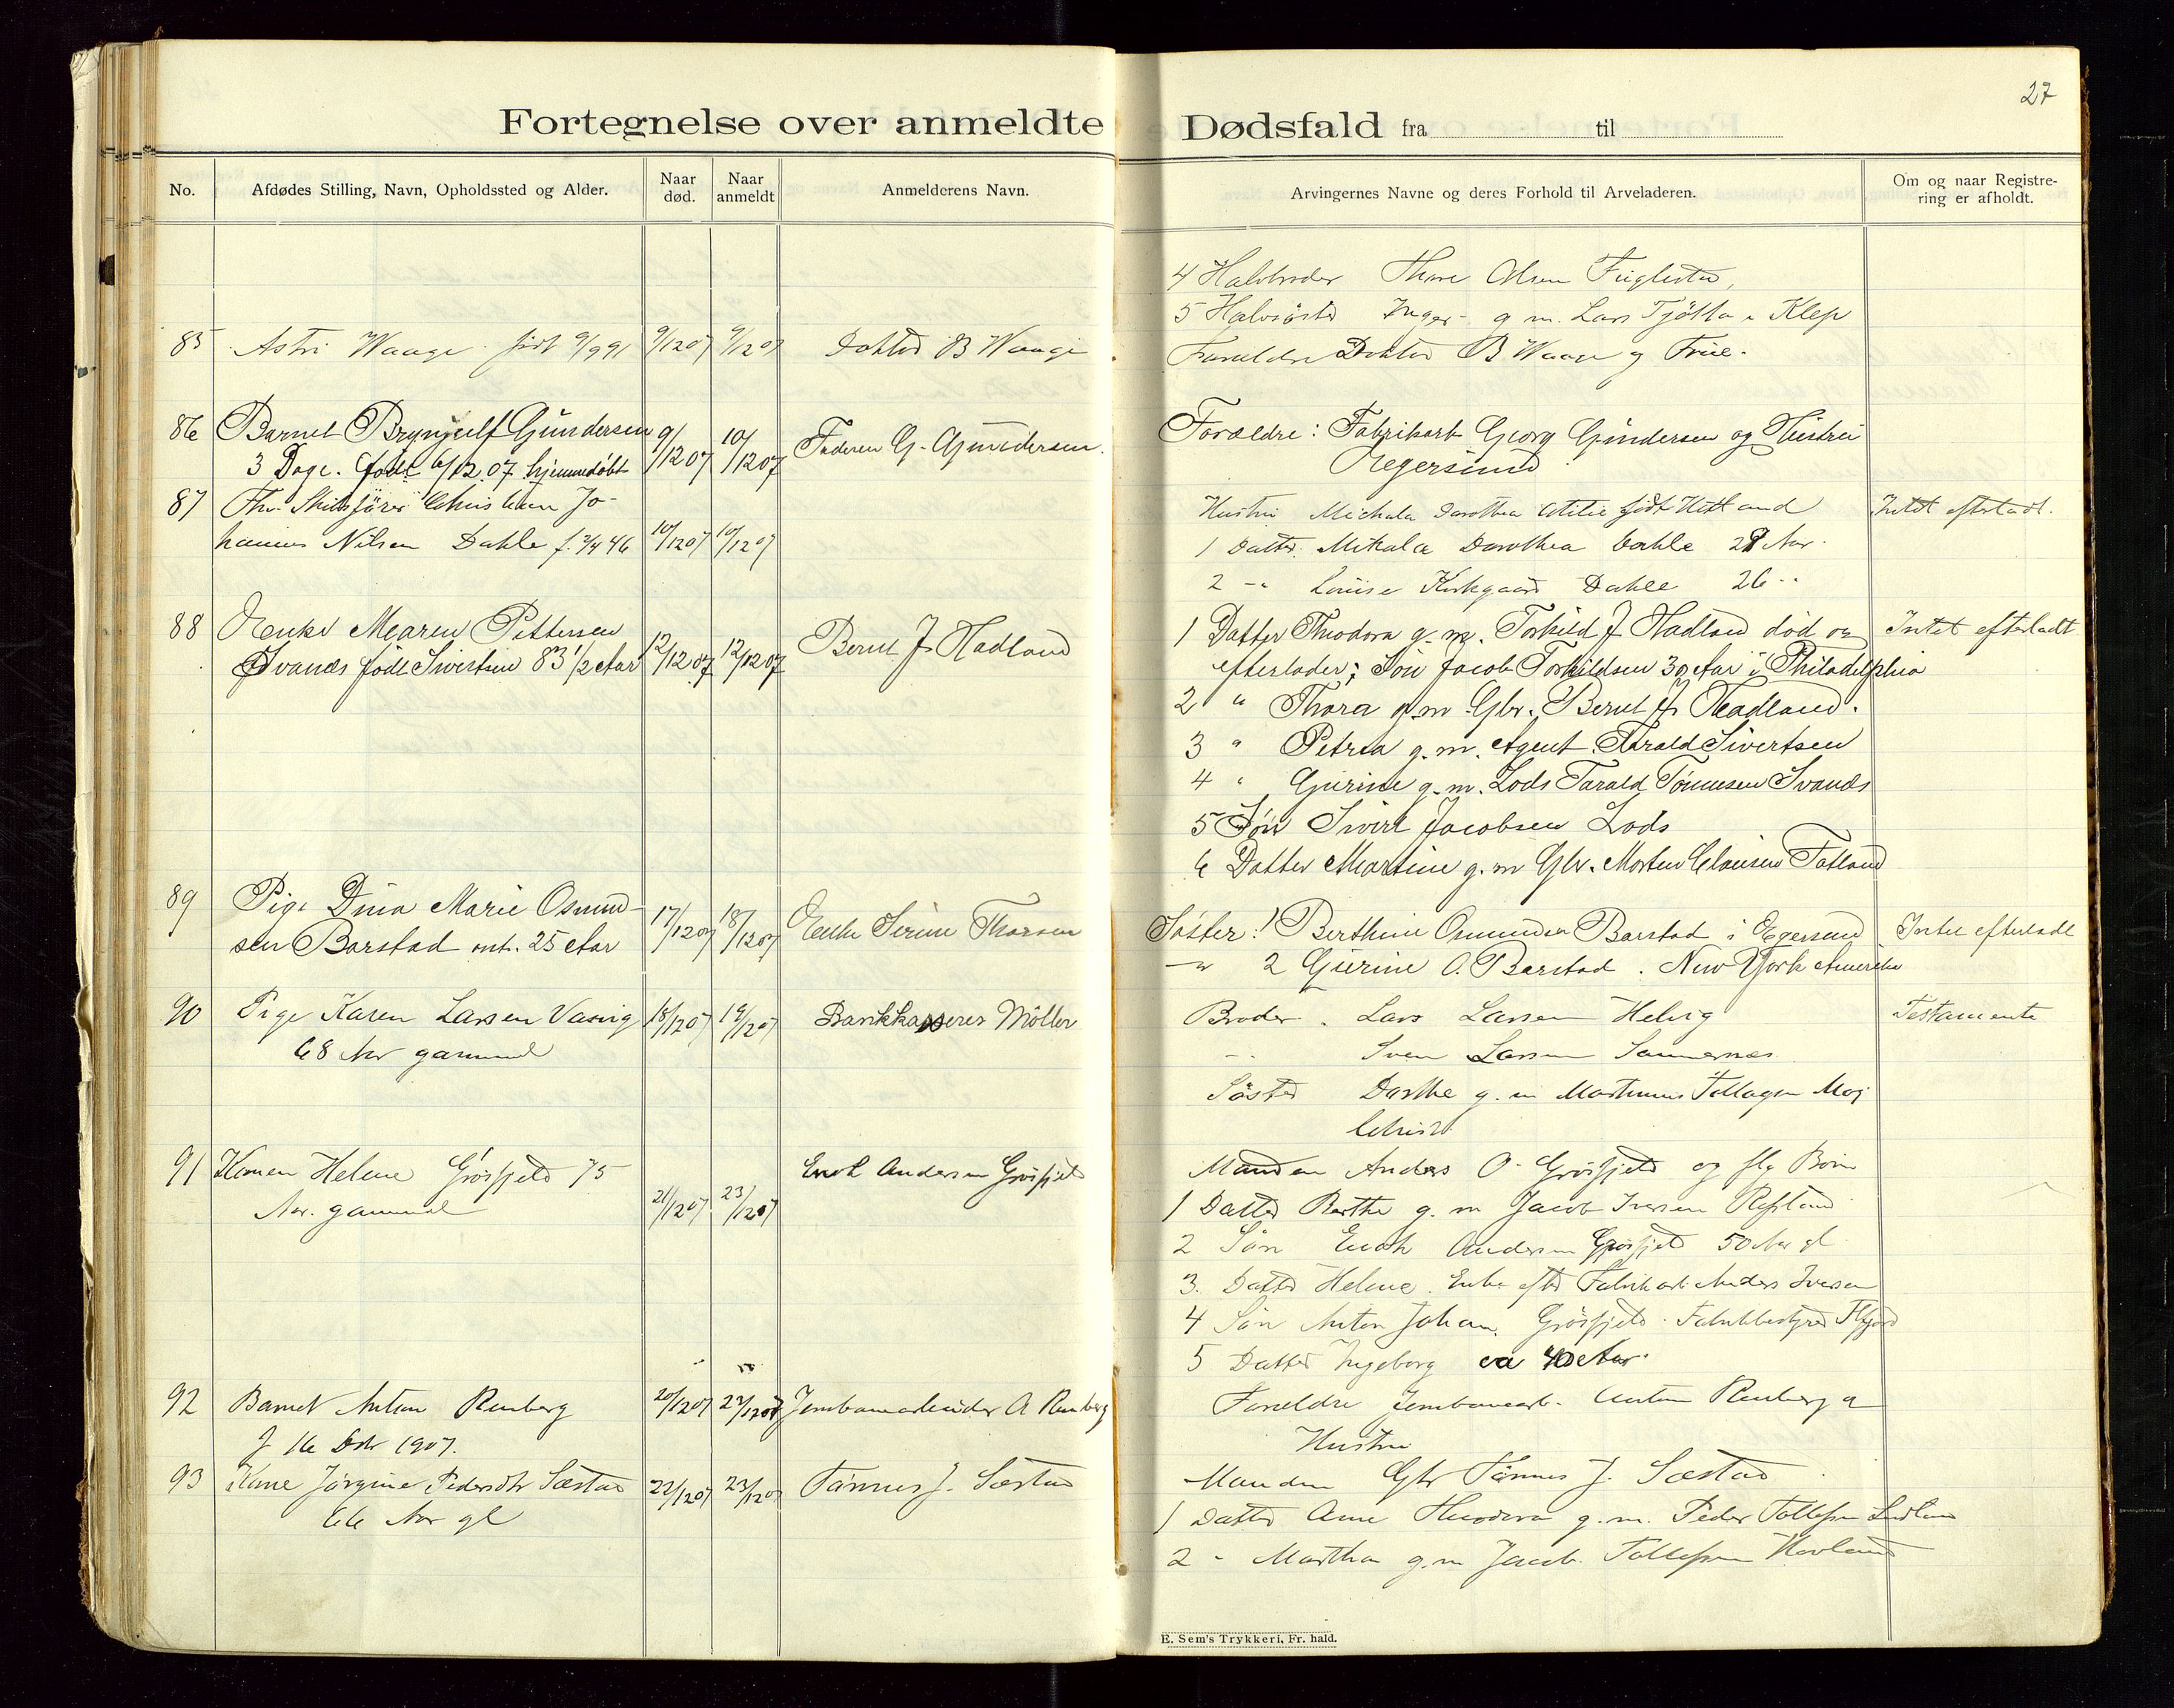 27
Fortegnelse over anmeldte Dødsfald fra til
No.
Afdødes Stilling, Navn, Opholdssted og Alder.
Naar død.
Naar anmeldt
Anmelderens Navn.
Arvingernes Navne og deres Forhold til Arveladeren.
Om og naar Registrering er afholdt.
4 Halvbroder Thore Olsen Fuglestad,
5 Halvsøster Inger g m. Lars Tjøtta i Klep
85 Astri Waage født 9/9 91 9/12 07 9/12 07 Doktor B Waage
Forældre Doktor B Waage og Frue.
86 Barnet Brynjulf Gundersen
3 Dage. født 6/12 07 hjemmedøbt
9/12 07 10/12 07 Faderen G. Gundersen.
Forældre: Fabrikarb Georg Gundersen og Hustru
Egersund
87 Fhv. Skibsfører Christian Jo-
hannes Nilsen Dahle f. 3/4 46 10/12 07 10/12 07
Hustru Michala Dorothea født Hetland Intet efterladt.
1 Datter. Mikala Dorothea Dahle 28 Aar.
2 -"- Louise Kirkgaard Dahle 26 "
88 Enke Maren Pettersen
Svanæs født Sivertsen 83 1/2 Aar 12/12 07 12/12 07 Bernt J. Hadland
1 Datter Theodora g. m. Torkild J. Hadland død og Intet efterladt
efterlader; Søn Jacob Torkildsen 30 Aar i Philadelphia
2 " Thora g. m Gbr. Bernt J. Hadland.
3 " Petrea g. m. Agent Tarald Sivertsen
4 " Gurine g. m. Lods Tarald Tønnesen Svanæs
5 Søn Sivert Jacobsen Lods
6 Datter Martine g. m Gbr. Morten Clausen Tatland
89 Pige Dina Marie Osmund-
sen Barstad omt. 25 Aar 17/12 07 18/12 07 Enke Sirine Thorsen
Søster: 1 Berthine Osmundsen Barstad i Egersund Intet efterladt
-"- 2 Gurine O. Barstad. New York Amerika
90 Pige Karen Larsen Vasvig 18/12 07 19/12 07 Bankkasserer Møller
68 Aar gammel
Broder. Lars Larsen Helvig Testamente
-"- Sven Larsen
Søster Dorthe g. m Moi
91 Konen Helene Grøsfjeld 75
Aar. gammel 21/12 07 23/12 07 Enok Andersen Grøsfjeld
Manden Anders O. Grøsfjeld og flg Børn
1 Datter Berthe g. m Jacob Iversen Refsland
2 Søn Enok Andersen Grøsfjeld 50 Aar gl
3. Datter Helene. Enke efter Fabrikarb Anders Iversen
4 Søn Anton Johan. Grøsfjeld. Fabrikbestyrer
5 Datter Ingeborg ca 40 Aar.
92 Barnet Anton Renberg 20/12 07 Jernbanearbeider A Renberg
f 16 Dcbr 1907.
Forældre Jernbanearb. Anton Renberg o
Hustru
93 Kone Jørgine Pedersdtr Sæstad 22/12 07 23/12 07 Tønnes J. Sæstad
66 Aar gl
Manden Gbr Tønnes J. Sæstad
1 Datter Ane Theodora g. m. Peder Tollefsen
2 " Martha g. m Jacob Tollefsen Hovland
E. Sem's Trykkeri, Fr. hald.